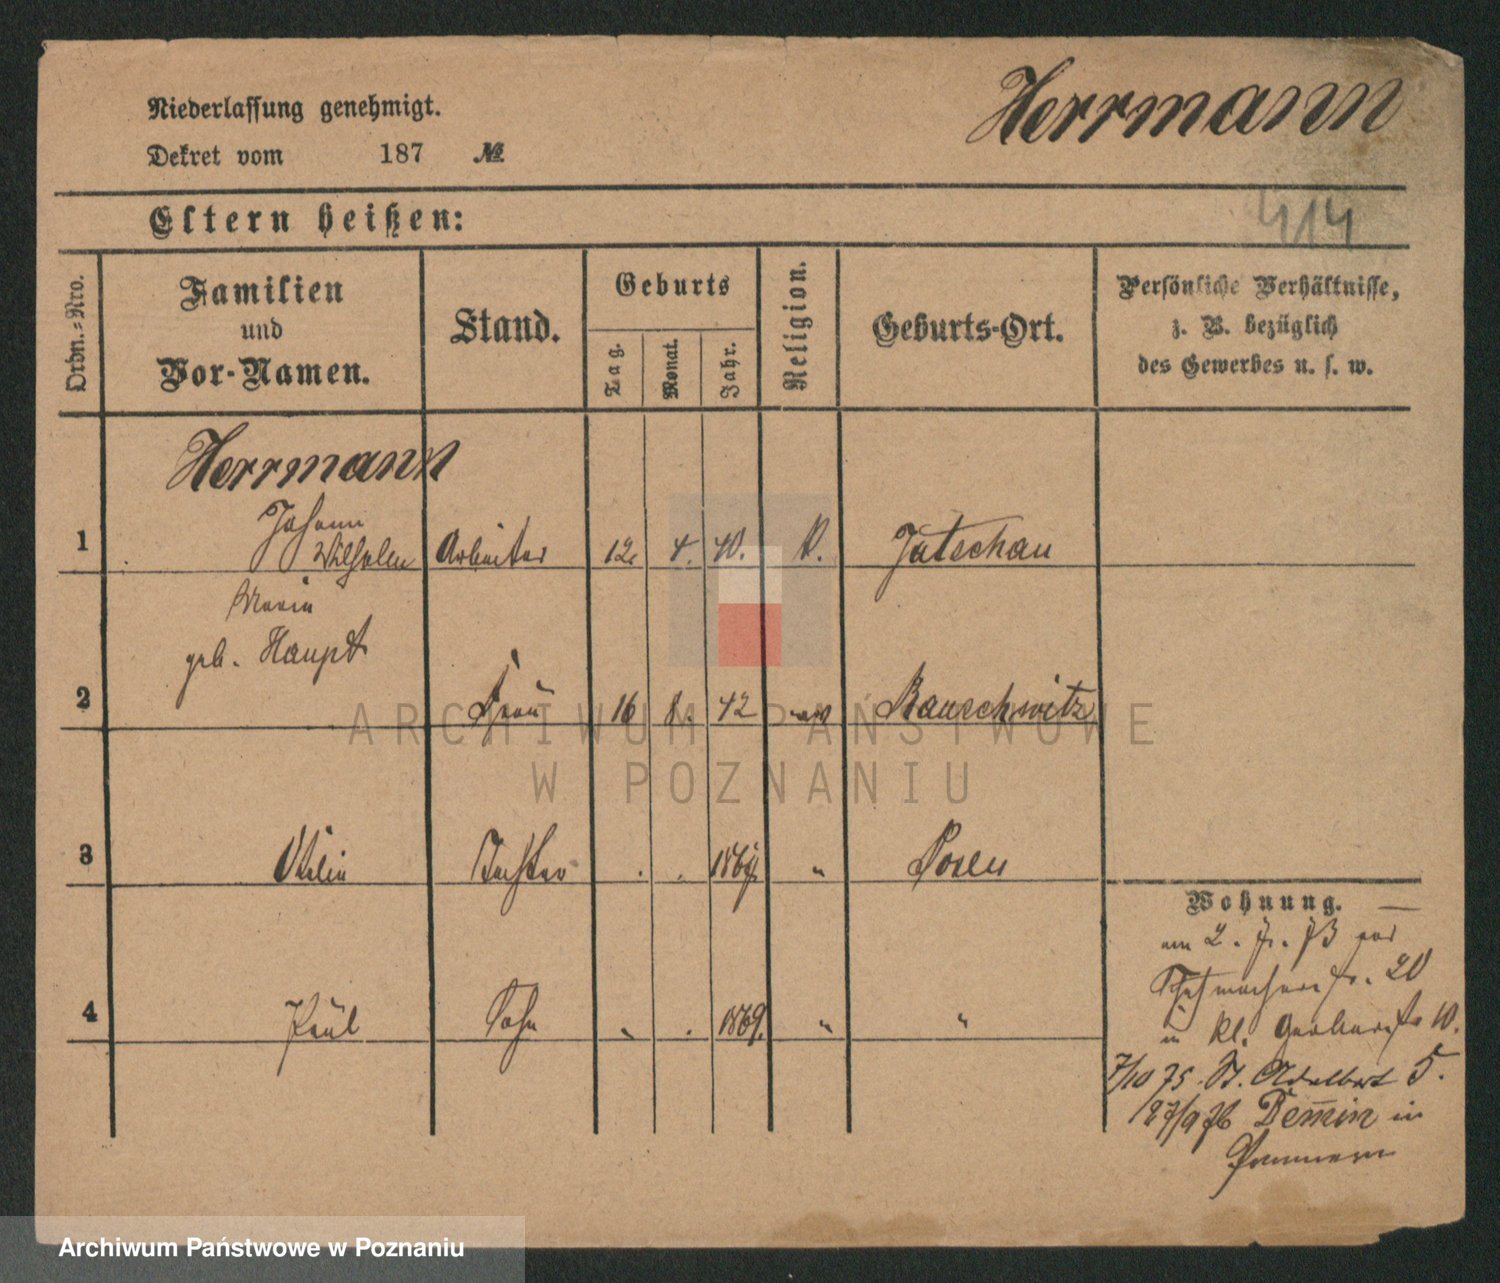 Herrmann
Niederlassung genehmigt.
Dekret vom 187 №
414
Eltern heißen:
Ordn.=Nro.
Familien
und
Vor-Namen.
Stand.
Geburts
Tag.
Monat.
Jahr.
Religion.
Geburts-Ort.
Persönliche Verhältnisse,
z. B. bezüglich
des Gewerbes u. s. w.
Herrmann
1 Johann
Wilhelm Arbeiter 12. 4. 40. Jätschau
Maria
geb. Haupt
2 Frau 16 8. 42 Rauschwitz
3 Otilie Tochter . . 1867. " Posen
4 Paul Sohn " . 1869. " "
Wohnung.
am 2. 73
Schuhmacherstr. 20
in kl. Gerberstr 10.
7/10 75. St. Adalbert 5.
27/9 76 Demin in
Pommern
ARCHIWUM PAŃSTWOWE
W POZNANIU
Archiwum Państwowe w Poznaniu